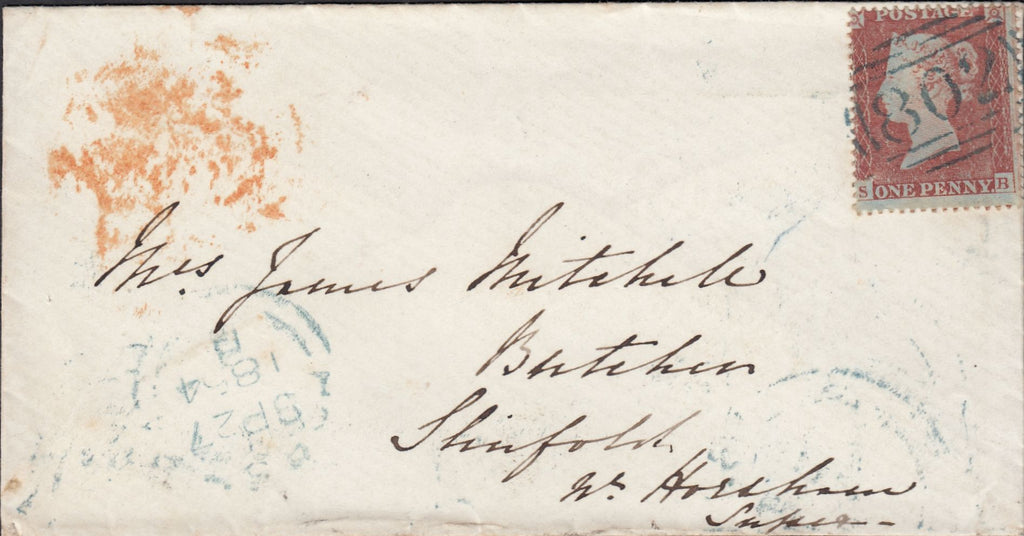 POSTAGE
802
S ONE PENNY R
Mrs. James Mitchell
Butcher
Slinfold
Nr. Horsham
Sussex
SP 27
1854
B